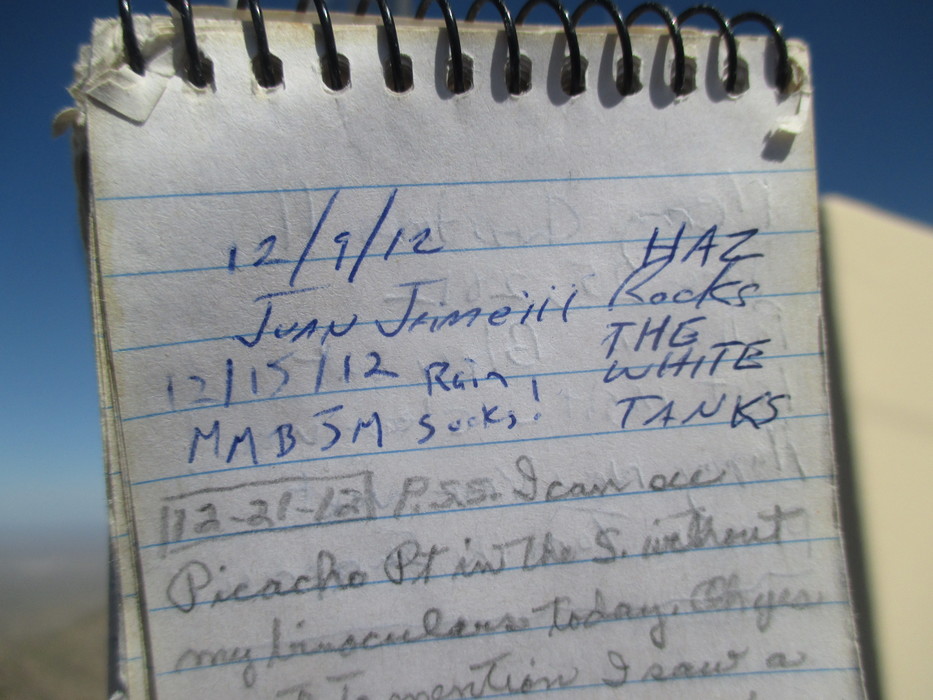 12/9/12 HAZ
Juan Rocks
THE
12/15/12 Rain, WHITE
MMB JM Sucks! TANKS
12-21-12 P.S.S. I can see
Picacho Pt in the S. without
my binoculars today. Oh yes
to mention I saw a